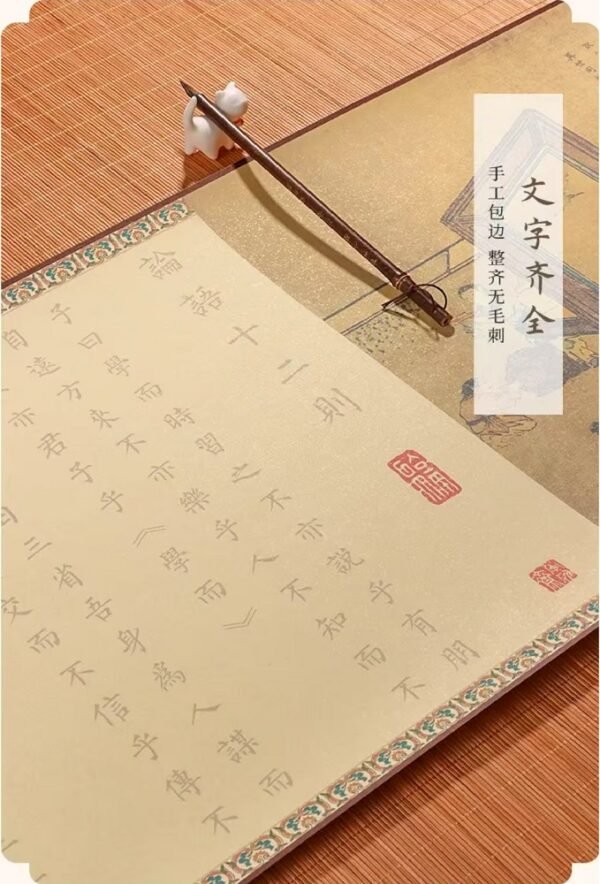 文字齐全
手工包边 整齐无毛刺
論語十二則
子曰學而時習之不亦說乎有朋
自遠方來不亦樂乎人不知而不
亦君子乎《學而》
日三省吾身為人謀而
交而不信乎傳不